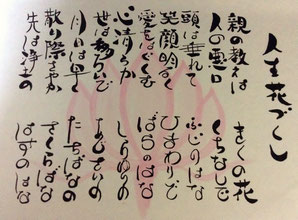 人生花づくし
親の教えは きくの花
人の悪口 くちなしで
頭は垂れて ふじのはな
笑顔明るく ひまわりで
愛をはぐくむ ばらのはな
心清らか しらゆりの
世は移ろいで あじさいの
月日は早く たちばなの
散り際さやか さくらばな
先は浄土の はすのはな